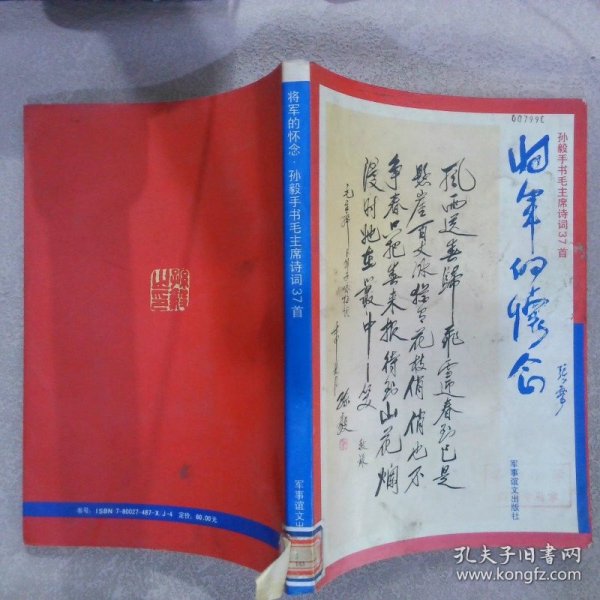 007990
孙毅手书毛主席诗词37首
将军的怀念
张震
风雨送春归飞雪迎春到已是
悬崖百丈冰犹有花枝俏俏也不
争春只把春来报待到山花烂
漫时她在丛中笑
孙毅
敬录
军事谊文出版社
将军的怀念·孙毅手书毛主席诗词37首
军事谊文出
书号:ISBN 7-80027-487-X/J·4 定价:60.00元
孔夫子旧书网
www.kongfz.com